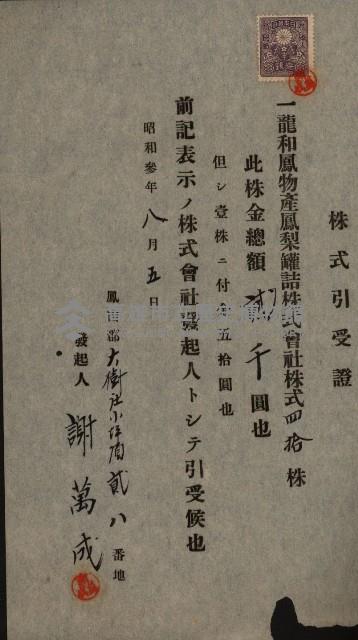 株式引受證
一龍和鳳物產鳳梨罐詰株式會社株式四拾株
此株金總額貳千圓也
但シ壹株ニ付金五拾圓也
前記表示ノ株式會社發起人トシテ引受候也
昭和參年八月五日
鳳山郡大樹庄小坪頂貳八番地
發起人 謝萬成